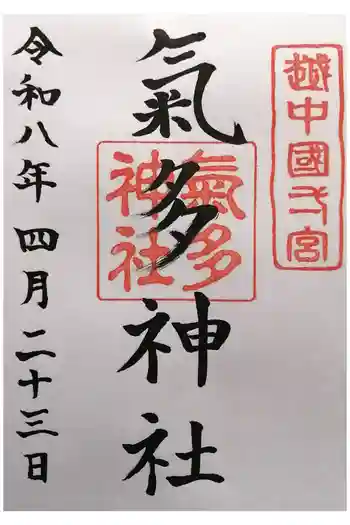 越中國弌宮
氣多神社
氣多
神社
令和八年四月二十三日